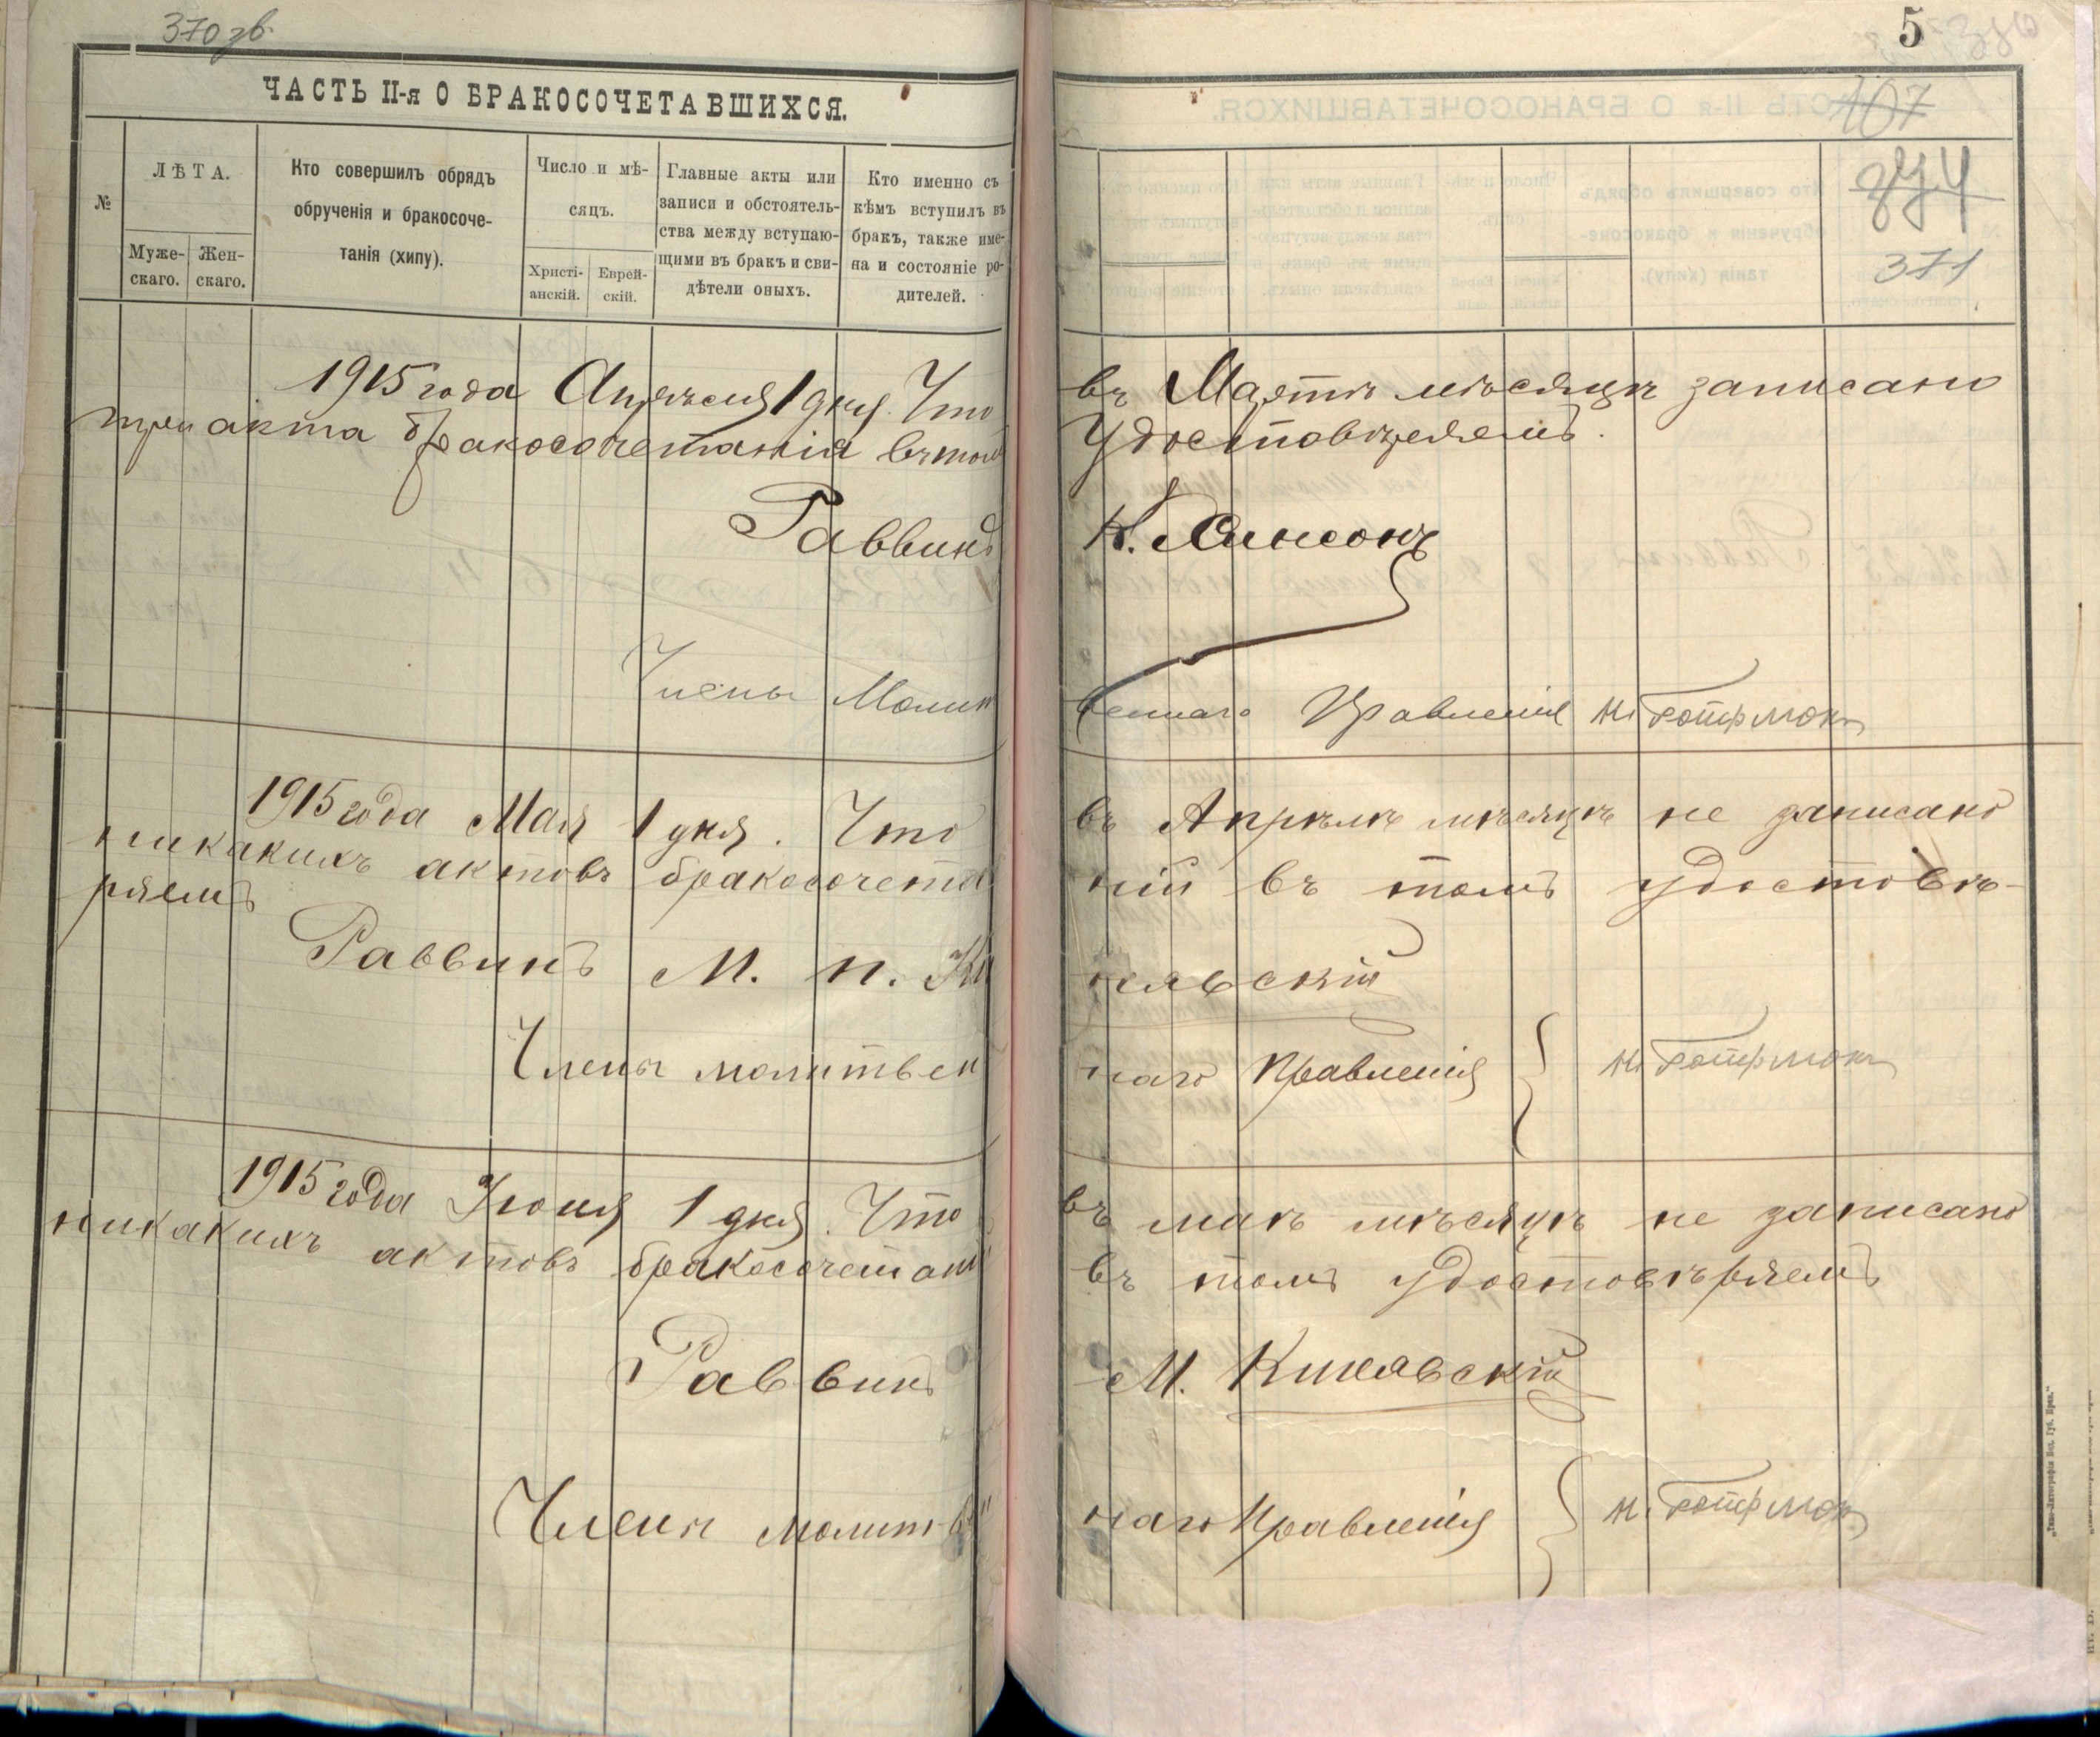 370 зв.
5
107
374
371
ЧАСТЬ II-я О БРАКОСОЧЕТАВШИХСЯ.
№
ЛѢТА.
Муже-
скаго.
Жен-
скаго.
Кто совершилъ обрядъ
обрученія и бракосоче-
танія (хипу).
Число и мѣ-
сяцъ.
Христі-
анскій.
Еврей-
скій.
Главные акты или
записи и обстоятель-
ства между вступаю-
щими въ бракъ и сви-
дѣтели оныхъ.
Кто именно съ
кѣмъ вступилъ въ
бракъ, также име-
на и состояніе ро-
дителей.
1915 года Апрѣля 1 дня. Что въ Мартѣ мѣсяцѣ записано
три акта бракосочетанія въ томъ удостовѣряемъ.
Раввинъ
Члены Молит веннаго Правленія
1915 года Мая 1 дня. Что въ Апрѣлѣ мѣсяцѣ не записано
никакихъ актовъ бракосочета ній въ томъ удостовѣ-
ряемъ
Раввинъ М. п.
Члены молитвен наго Правленія
1915 года Іюня 1 дня. Что въ маѣ мѣсяцѣ не записано
никакихъ актовъ бракосочетаній въ томъ удостовѣряемъ
Раввинъ М.
Члены молитв наго Правленія